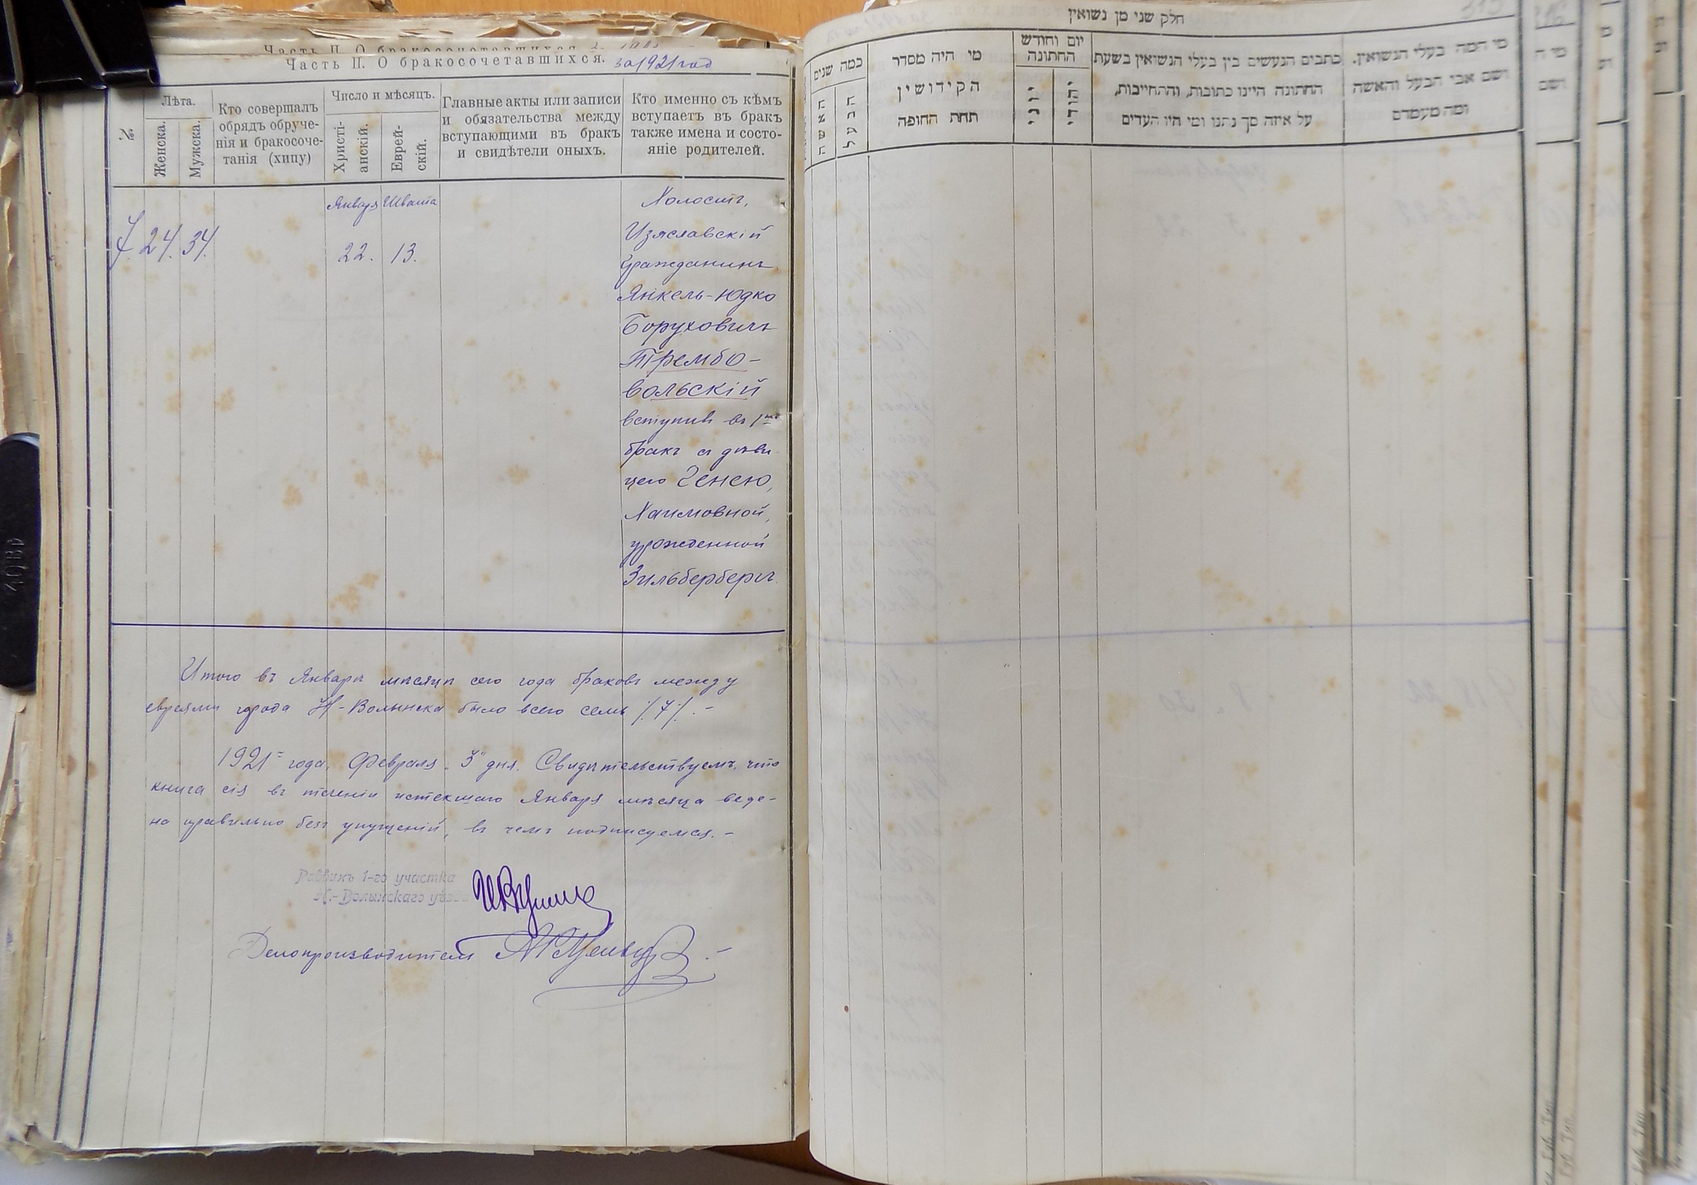 Часть II. О бракосочетавшихся
Часть II. О бракосочетавшихся. за 1921 год
№
Лѣта.
Женска.
Мужска.
Кто совершалъ
обрядъ обруче-
нія и бракосоче-
танія (хипу)
Число и мѣсяцъ.
Христі-
анскій.
Еврей-
скій.
Главные акты или записи
и обязательства между
вступающими въ бракъ
и свидѣтели оныхъ.
Кто именно съ кѣмъ
вступаетъ въ бракъ
также имена и состо-
яніе родителей.
7. 24. 34.
Января Швата
22. 13.
Холостъ,
Изяславскій
гражданинъ
Янкель-Юдко
Боруховичъ
Трембо-
вольскій
вступив въ 1ый
бракъ съ дѣви-
цею Генею,
Хаимовной,
урожденной
Зильбербергъ
Итого въ Январѣ мѣсяцѣ сего года браковъ между
евреями города Н-Волынска было всего семь /7/. –
1921 года, Февраля 3 дня. Свидѣтельствуемъ, что
книга сія въ теченіи истекшаго Января мѣсяца веде-
на правильно безъ упущеній, въ чемъ подписуемся. –
Раввинъ 1-го участка
Н.-Волынскаго уѣзда
Делопроизводитель
חלק שני מן נשואין
כמה שנים
האשה
הבעל
מי היה מסדר
הקידושין
תחת החופה
יום וחודש
החתונה
יווני
יהודי
כתבים הנעשים בין בעלי הנשואין בשעת
החתונה היינו כתובות, והתחייבות,
על איזה סך נתנו ומי היו העדים
מי המה בעלי הנשואין.
ושם אבי הבעל והאשה
ומה מעמדם